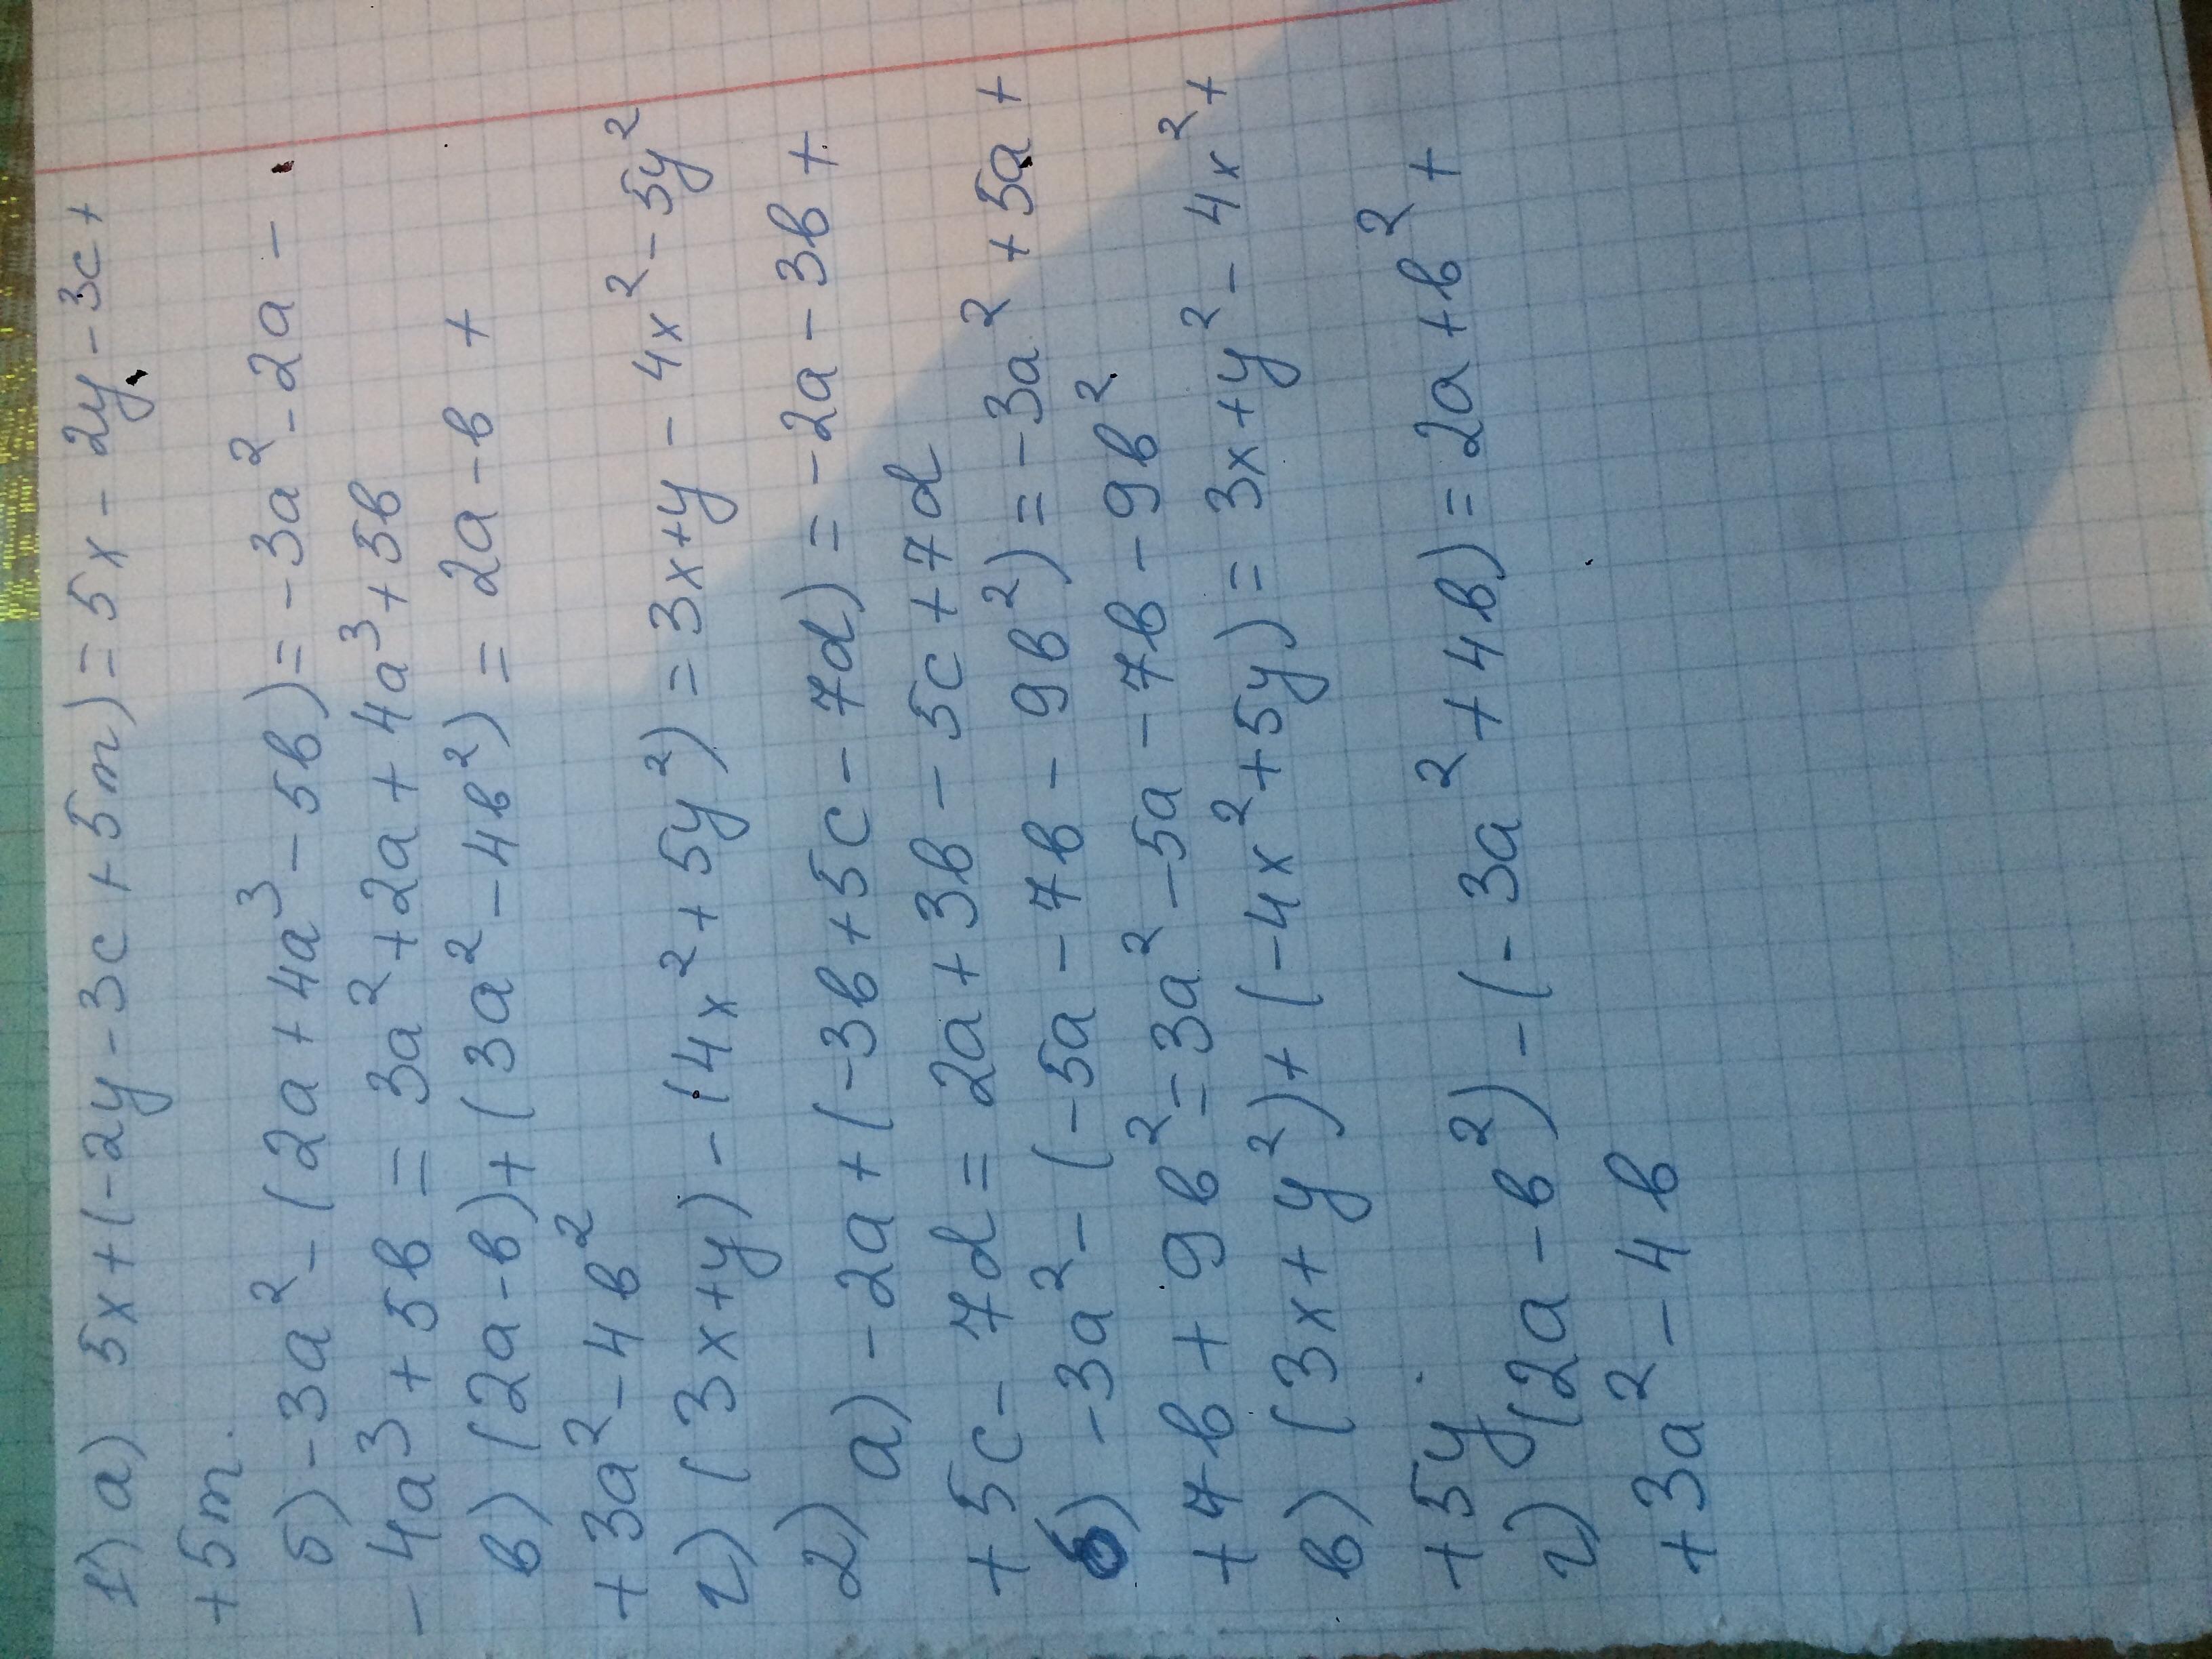 1) а) 5x+(-2y-3c+5m)=5x-2y-3c+
+5m.
б) -3a²-(2a+4a³-5в)=-3a²-2a-
-4a³+5в=3a²+2a+4a³+5в
в) (2a-в)+(3a²-4в²)=2a-в+
+3a²-4в²
г) (3x+y)-(4x²+5y²)=3x+y-4x²-5y²
2) а) -2a+(-3в+5c-7d)=-2a-3в+
+5c-7d=2a+3в-5c+7d
б) -3a²-(-5a-7в-9в²)=-3a²+5a+
+7в+9в²=3a²-5a-7в-9в²
в) (3x+y²)+(-4x²+5y)=3x+y²-4x²+
+5y.
г) (2a-в²)-(-3a²+4в)=2a+в²+
+3a²-4в